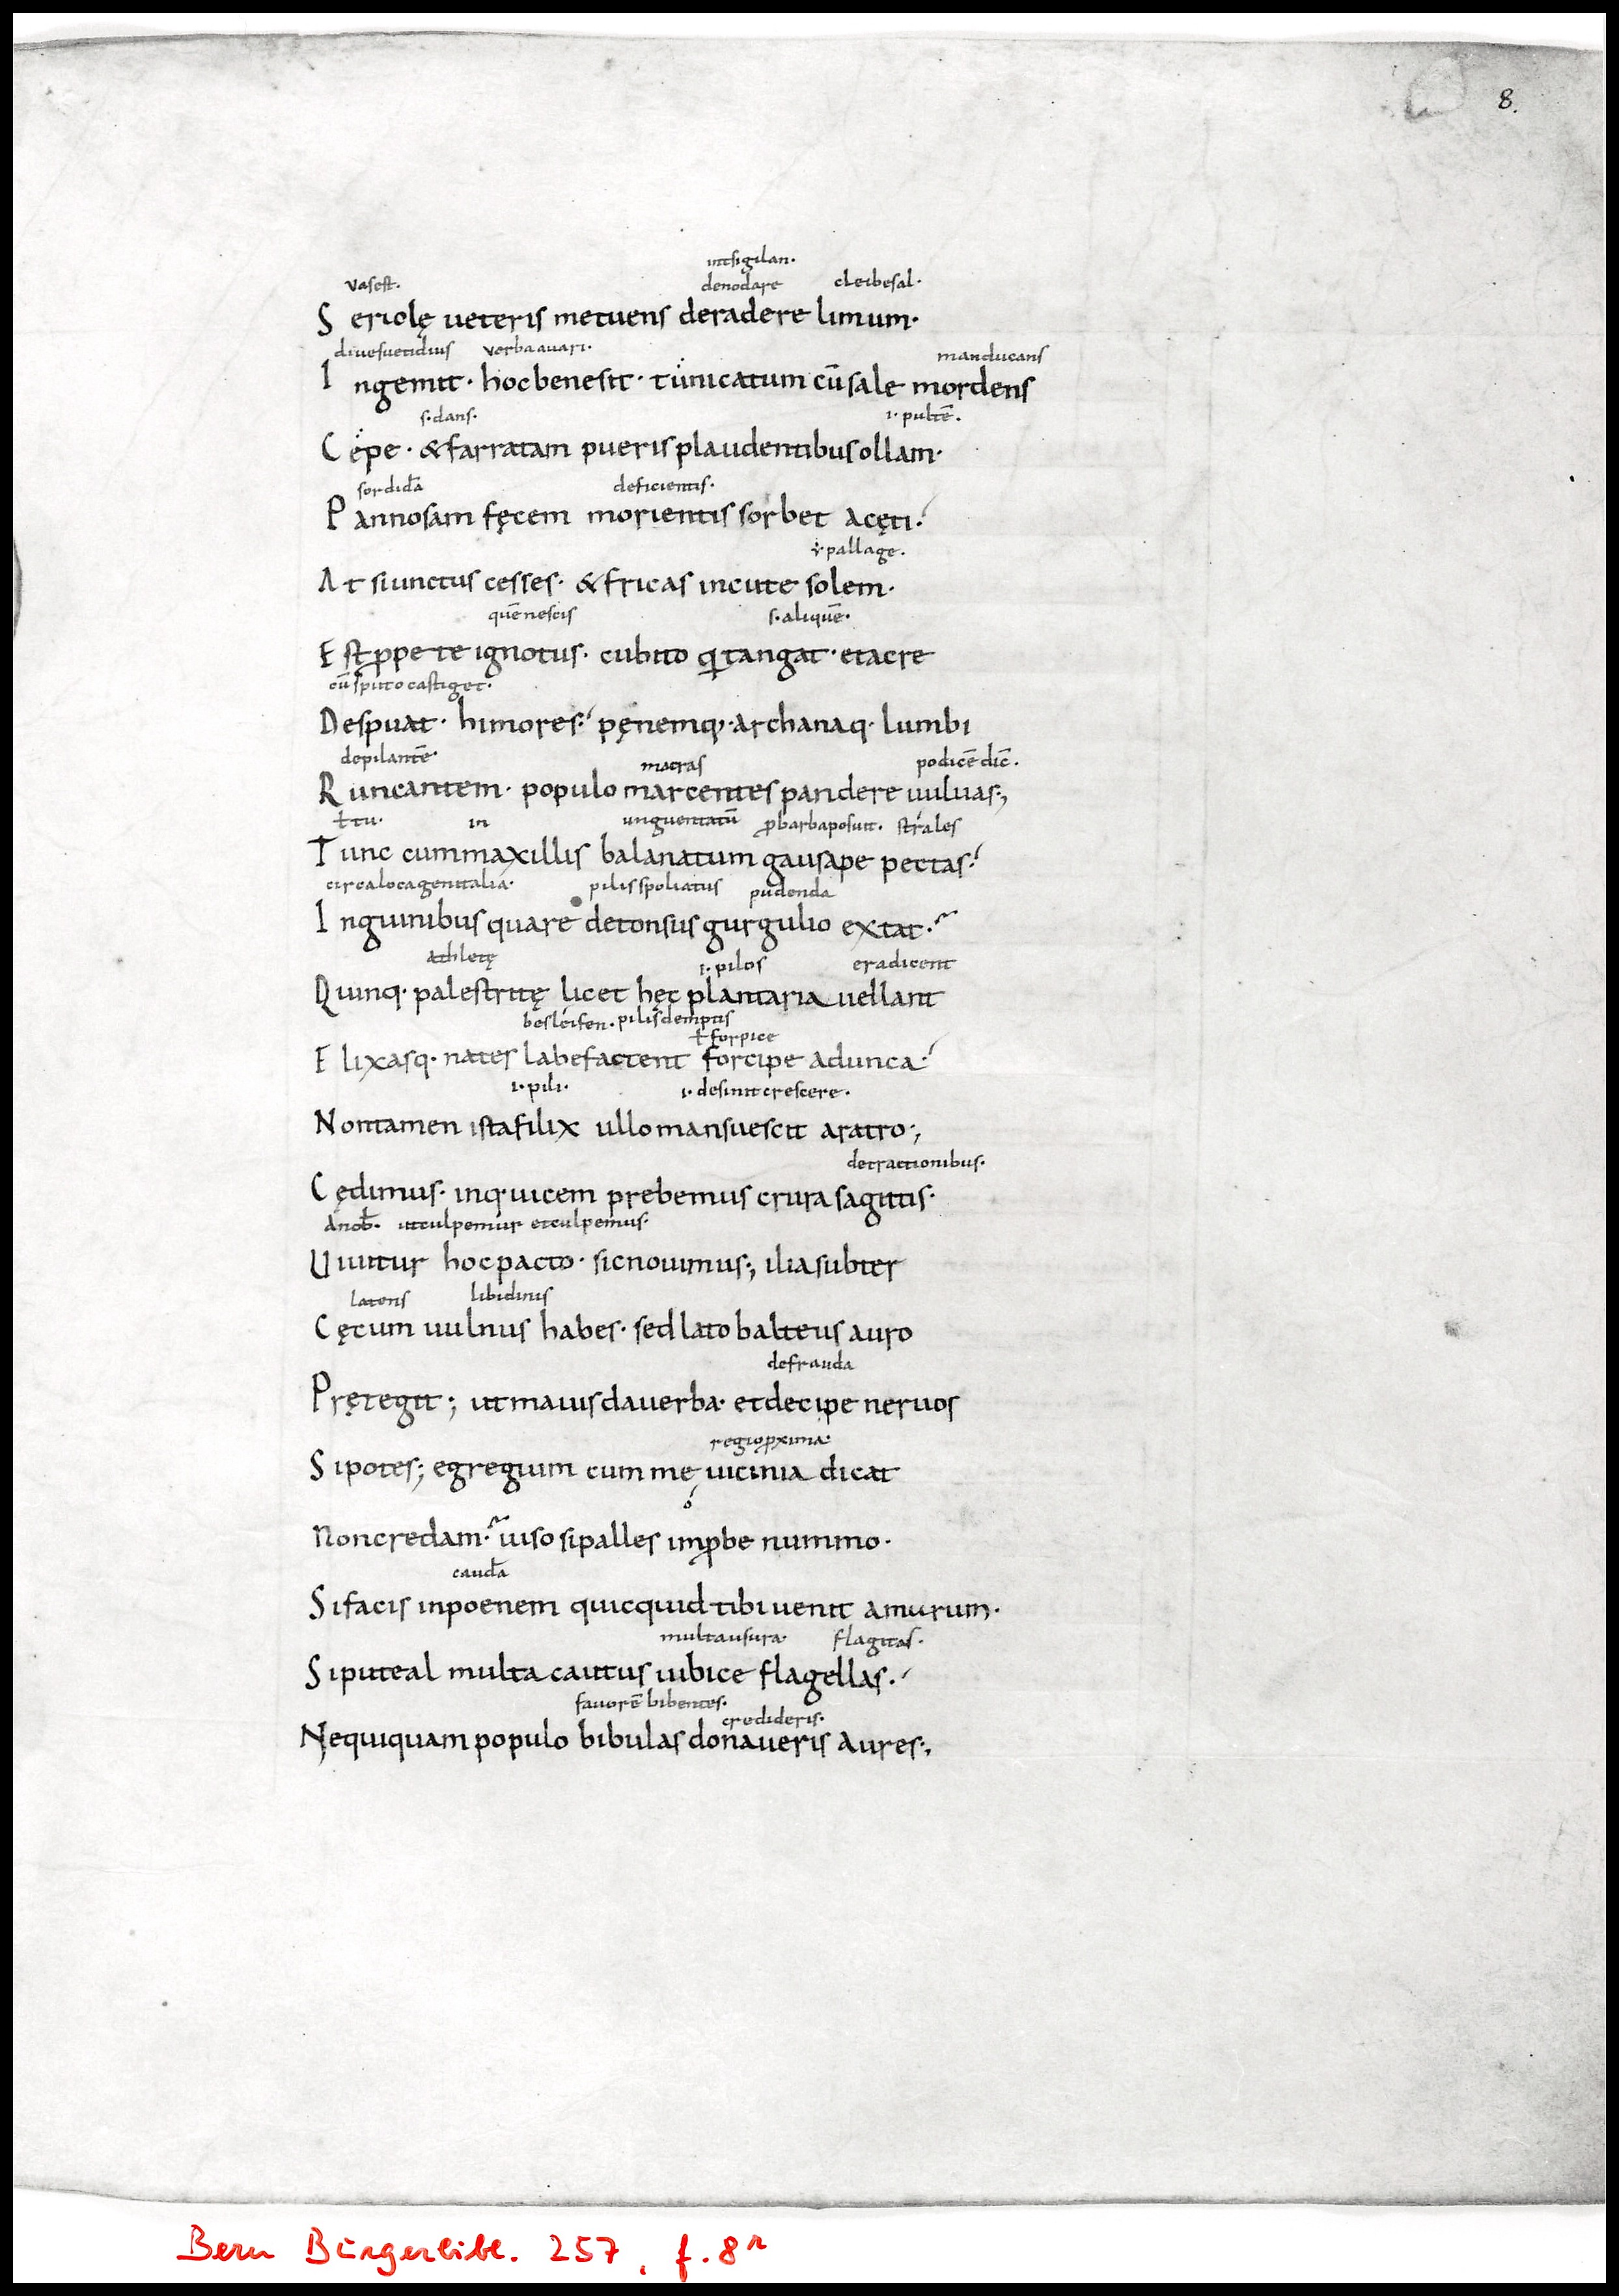 8.
intsigilan.
vasest. denodare cleibesal.
S eriolę ueteris metuens deradere limum.
diuesuetidius verbaauari. manducans
I ngemit. hocbenesit. tunicatum cū sale mordens
s.dans. i.pultē.
C epe. & farratam pueris plaudentibus ollam.
sordidā deficientis.
P annosam fęcem morientis sorbet acęti.
ẏ.pallage.
At siunctus cesses. & fricas incute solem.
quē nescis s.aliquē.
E st ꝓpe te ignotus. cubito q tangat. etacre
cū sputo castiget.
Despuat. himores. pęnemq;. archanaq. lumbi
depilantē. macras podicē dic̄.
R uncantem. populo marcentes pandere uuluas;
ł tu. in unguentatū ꝓbarbaposuit. striales
T unc cummaxillis balanatum gausape pectas.
circalocagenitalia. pilis spoliatus pudenda
I nguinibus quare detonsus gurgulio extat.
athletę i.pilos eradicent
Quinq. palestritę licet hęc plantaria uellant
besleifen. pilisdemptis
ł forpice
E lixasq. nates labefactent forcipe adunca.
i.pili. i.desinit crescere.
Nontamen istafilix ullo mansuescit aratro;
detractionibus.
C ędimus. inq.uicem prebemus crura sagittis.
Anob̄. utculpemur etculpemus.
Uiuitur hoc pacto. sic nouimus; iliasubter
latens libidinis
C ęcum uulnus habes. sed lato balteus auro
defrauda
Prętegit; ut mauis dauerba. et decipe neruos
regioꝓxima.
S ipotes; egregium cum mę uicinia dicat
Noncredam. uiso sipalles imꝓbe nummo.
caudā
Sifacis inpoenem quicquid tibi uenit amurum.
multausura. flagitas.
Siputeal multa cautus uibice flagellas.
fauorē bibentes.
credideris.
Nequiquam populo bibulas donaueris aures;
Bern Bürgerbibl. 257, f. 8r